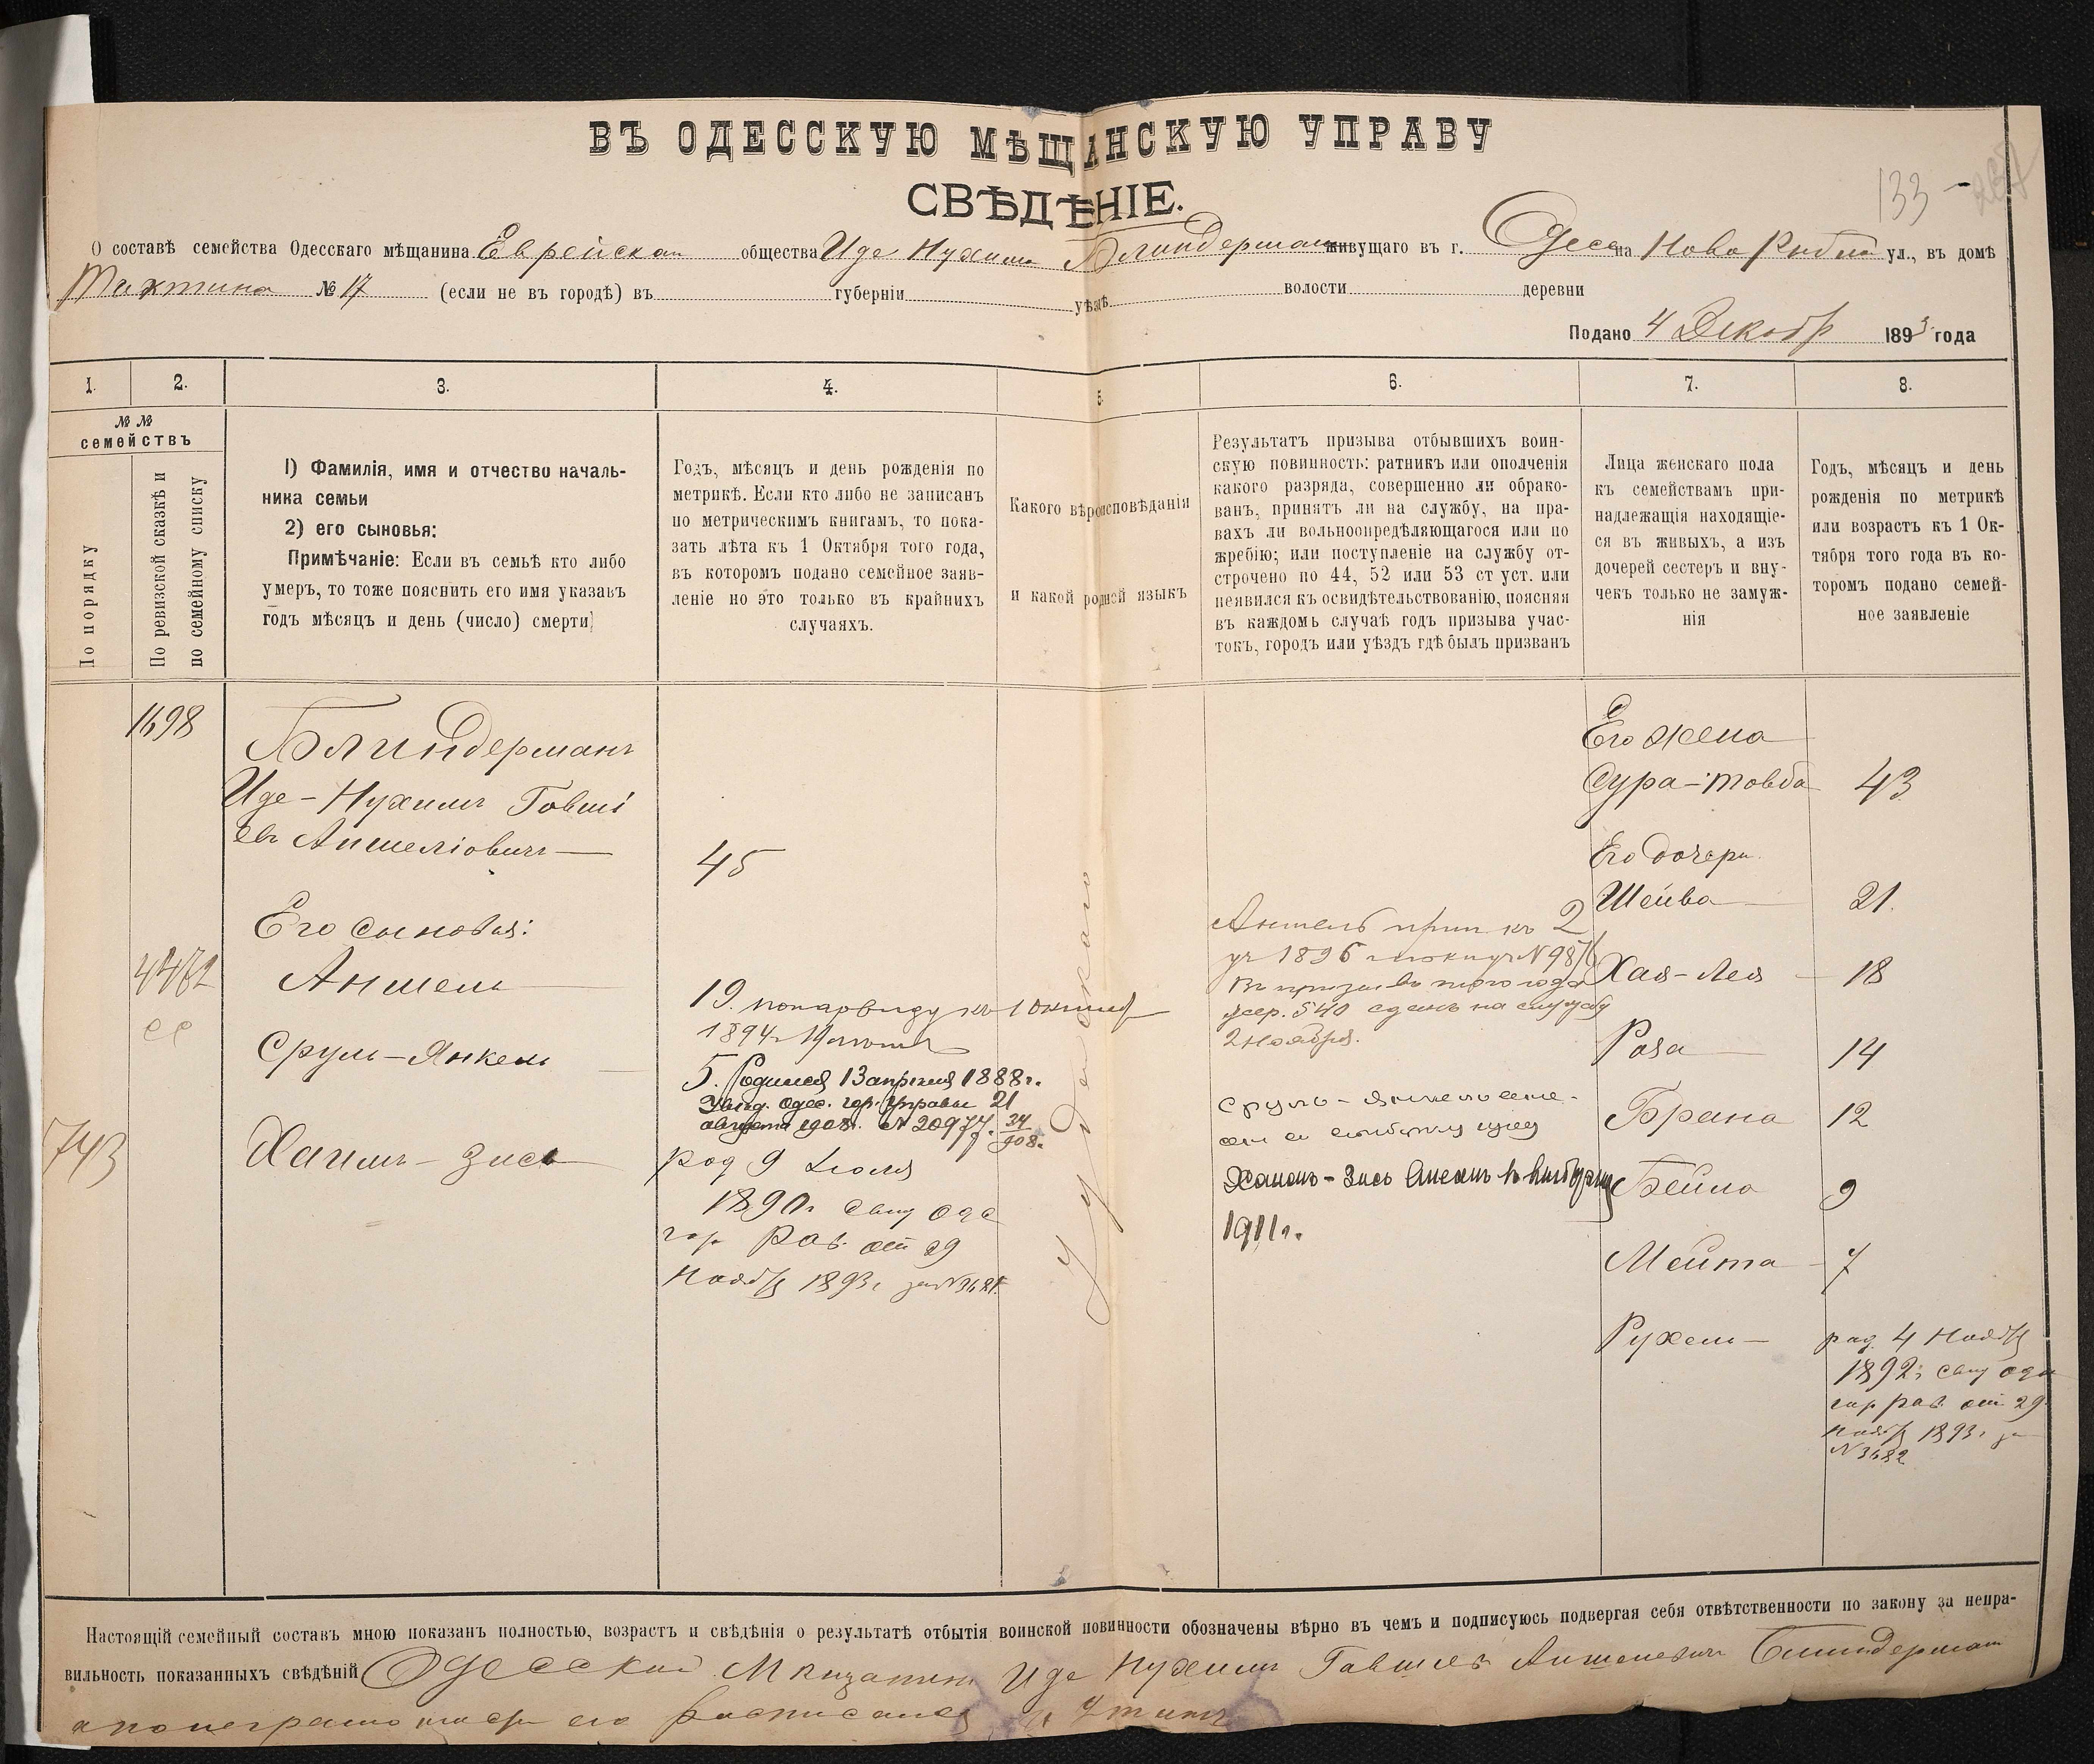 ВЪ ОДЕССКУЮ МѢЩАНСКУЮ УПРАВУ
СВѢДѢНІЕ.
133
О составѣ семейства Одесскаго мѣщанина Еврейскаго общества Иде Нухима Блиндерман живущаго въ г. Одесса на Ново Рибной ул., въ домѣ
Тихтина № 17 (если не въ городѣ) въ губерніи уѣздѣ волости деревни
Подано 4 Декабр 1893 года
1. 2. 3. 4. 5. 6. 7. 8.
№№
семействъ
По порядку
По ревизской сказкѣ и
по семейному списку
1) Фамилія, имя и отчество началь-
ника семьи
2) его сыновья:
Примѣчаніе: Если въ семьѣ кто либо
умеръ, то тоже пояснить его имя указавъ
годъ мѣсяцъ и день (число) смерти
Годъ, мѣсяцъ и день рожденія по
метрикѣ. Если кто либо не записанъ
по метрическимъ книгамъ, то пока-
зать лѣта къ 1 Октября того года,
въ которомъ подано семейное заяв-
леніе но это только въ крайнихъ
случаяхъ.
Какого вѣроисповѣданія
и какой родной языкъ
Результатъ призыва отбывшихъ воин-
скую повинность: ратникъ или ополченія
какого разряда, совершенно ли обрако-
ванъ, принятъ ли на службу, на пра-
вахъ ли вольноопредѣляющагося или по
жребію; или поступленіе на службу от-
строчено по 44, 52 или 53 ст уст. или
неявился къ освидѣтельствованію, поясняя
въ каждомъ случаѣ годъ призыва учас-
токъ, городъ или уѣздъ гдѣ былъ призванъ
Лица женскаго пола
къ семействамъ при-
надлежащія находящіе-
ся въ живыхъ, а изъ
дочерей сестеръ и вну-
чекъ только не замуж-
нія
Годъ, мѣсяцъ и день
рожденія по метрикѣ
или возрастъ къ 1 Ок-
тября того года въ ко-
торомъ подано семей-
ное заявленіе
1698
4472
743
Блиндерманъ
Иде-Нухимъ Говші
евъ Аншеліовичъ
Его сыновья:
Аншель
Сруль-Янкель
Хаимъ-Зись
45
19. по нар виду къ 1 Октяб
1894 г. 19
5. Родился 13 апрѣля 1888 г.
Увѣд. Одес. гор. Управы 21
августа 1908 г. № 20977. 34/908.
род 9 Іюля
1890 г свид Оде
гор Рав. отъ 29
Ноябр 1893 г за №
Іудейскаго
Аншель прип къ 2
уч 1896 № 987
въ призывъ того года
жер. 540 сданъ на службу
2 ноября.
Сруль-Янкель
Хаимъ-Зись внесенъ въ выборку
1911 г.
Его жена
Сура-Товба 43
Его дочери
Шейва 21
Хая-Лея 18
Роза 14
Брана 12
Бейла 9
Мейта 7
Рухель
род 4 Ноябр
1892 г свид Оде
гор рав. отъ 29
ноябр 1893 г за
№ 3682
Настоящій семейный составъ мною показанъ полностью, возрастъ и свѣдѣнія о результатѣ отбытія воинской повинности обозначены вѣрно въ чемъ и подписуюсь подвергая себя отвѣтственности по закону за непра-
вильность показанныхъ свѣдѣній Одесский Мещанинъ Иде Нухимъ Гавшіевъ Аншелевичъ Блиндерман
а по неграмотности его расписался